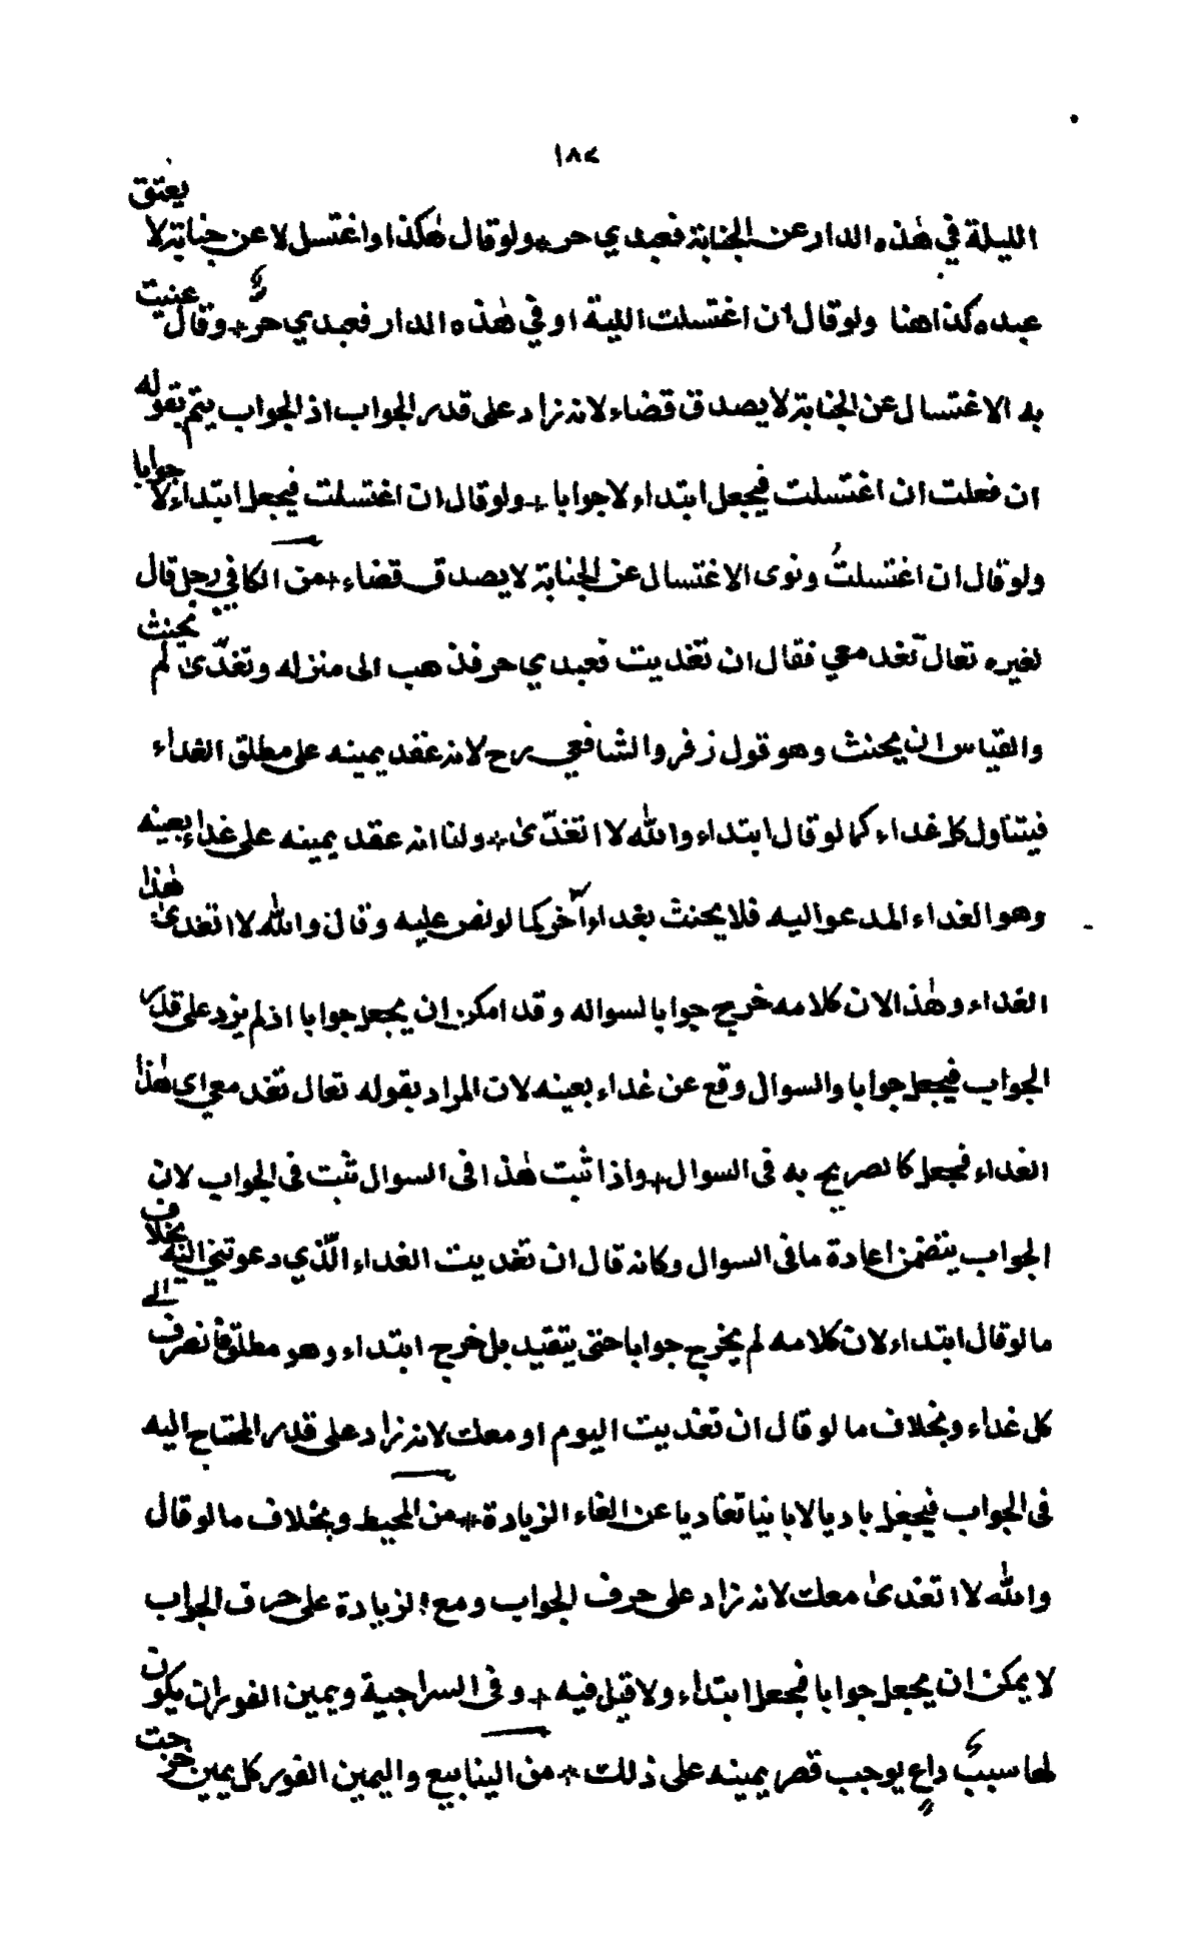 ١٨٢
الليلة في هٰذه الدار عن الجنابة فعبدي حر + ولو قال هٰكذا واغتسل لا عن جنابة لا يعتق
عبده كذا هنا ولو قال ان اغتسلت الليلة او في هٰذه الدار فعبدي حر + وقال عنيت
به الاغتسال عن الجنابة لا يصدق قضاء لانه زاد على قدر الجواب اذ الجواب يتم بقوله
ان فعلت ان اغتسلت فيجعل ابتداء لا جوابا + ولو قال ان اغتسلت فيجعل ابتداء لا جوابا
ولو قال ان اغتسلتُ ونوى الاغتسال عن الجنابة لا يصدق قضاء + من الكافي رجل قال
لغيره تعال تغد معي فقال ان تغديت فعبدي حر فذهب الى منزله وتغدّىٰ لم يحنث
والقياس ان يحنث وهو قول زفر والشافعي رح لانه عقد يمينه على مطلق الغداء
فيتناول كل غداء كما لو قال ابتداء والله لا اتغدّىٰ + ولنا انه عقد يمينه على غداء بعينه
وهو الغداء المدعو اليه فلا يحنث بغداء آخر كما لو نص عليه وقال والله لا اتغدىٰ هٰذا
الغداء وهٰذا لان كلامه خرج جوابا لسواله وقد امكن ان يجعل جوابا اذ لم يزد على قدر
الجواب فيجعل جوابا والسوال وقع عن غداء بعينه لان المراد بقوله تعال تغد معي اى هٰذا
الغداء فيجعل كالصريح به فى السوال + واذا ثبت هٰذا فى السوال ثبت فى الجواب لان
الجواب يتضمن اعادة ما فى السوال وكانه قال ان تغديت الغداء الّذي دعوتني اليه بخلاف
ما لو قال ابتداء لان كلامه لم يخرج جوابا حتى يتقيد بل خرج ابتداء وهو مطلق فانصرف الى
كل غداء وبخلاف ما لو قال ان تغديت اليوم او معك لانه زاد على قدر المحتاج اليه
فى الجواب فيجعل باديا لا بانيا تفاديا عن الغاء الزيادة + من المحيط وبخلاف ما لو قال
والله لا اتغدىٰ معك لانه زاد على حرف الجواب ومع الزيادة على حرف الجواب
لا يمكن ان يجعل جوابا فيجعل ابتداء ولا قيل فيه + وفى السراجية ويمين الفور ان يكون
لها سبب داعٍ يوجب قصر يمينه على ذلك + من الينابيع واليمين الفور كل يمين خرجت